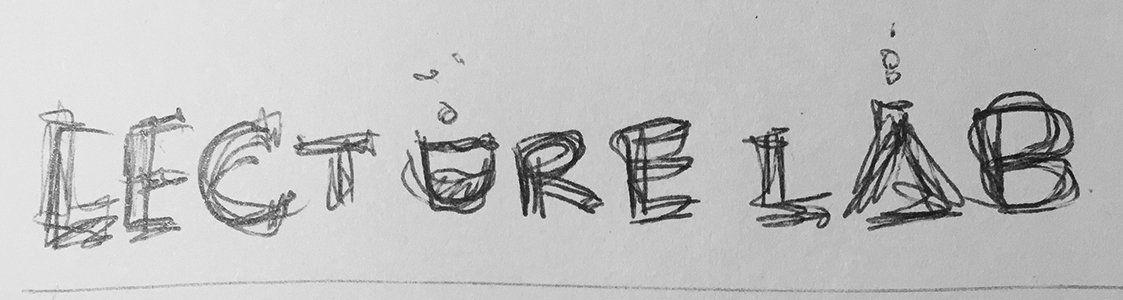 LECTURE LAB